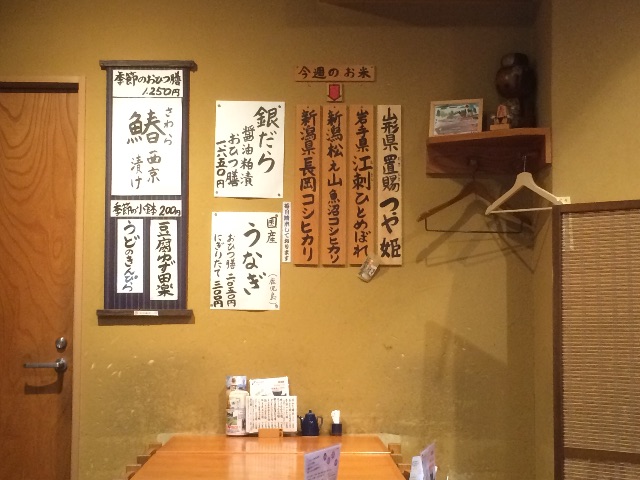 季節のおひつ膳
1.250円
さわら
鰆 西京
漬け
季節の小鉢 200円
豆腐ゆず田楽
うどのきんぴら
銀だら
醤油粕漬
おひつ膳
一六五〇円
国産
うなぎ
(鹿児島)
おひつ膳 二〇五〇円
にぎりたて 三〇〇円
今週のお米
山形県 置賜 つや姫
岩手県 江刺 ひとめぼれ
新潟 松え山 魚沼コシヒカリ
新潟県 長岡 コシヒカリ